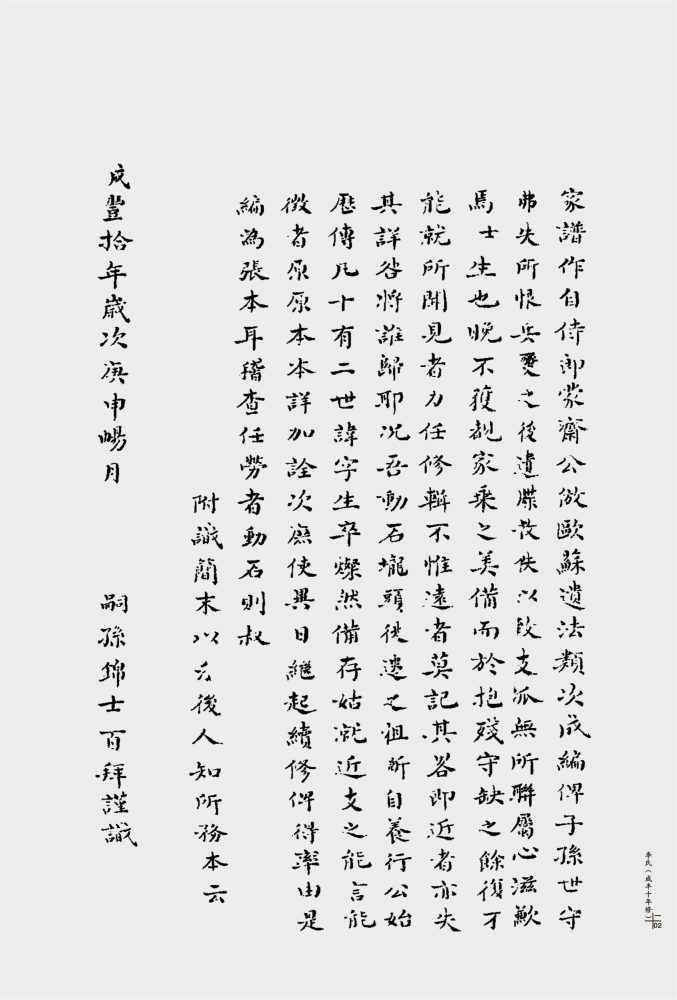 家譜作自侍郎蒙齋公倣歐蘇遺法類次成編俾子孫世守
弗失所恨兵燹之後遺牒散佚以致支派無所聯屬心滋歉
焉士生也晚不獲覩家乘之美備而於抱殘守缺之餘復不
能就所聞見者力任修輯不惟遠者莫記其畧即近者亦失
其詳咎將誰歸耶況吾動石壠頭徙遷之祖斷自養行公始
歷傳凡十有二世諱字生卒燦然備存姑就近支之能言能
徵者原原本本詳加詮次庶使異日繼起續修俾得率由是
編為張本耳稽查任勞者動石則叔
附識簡末以示後人知所務本云
咸豐拾年歲次庚申暢月
嗣孫錦士百拜謹識
李氏（咸丰十年修）
二
02